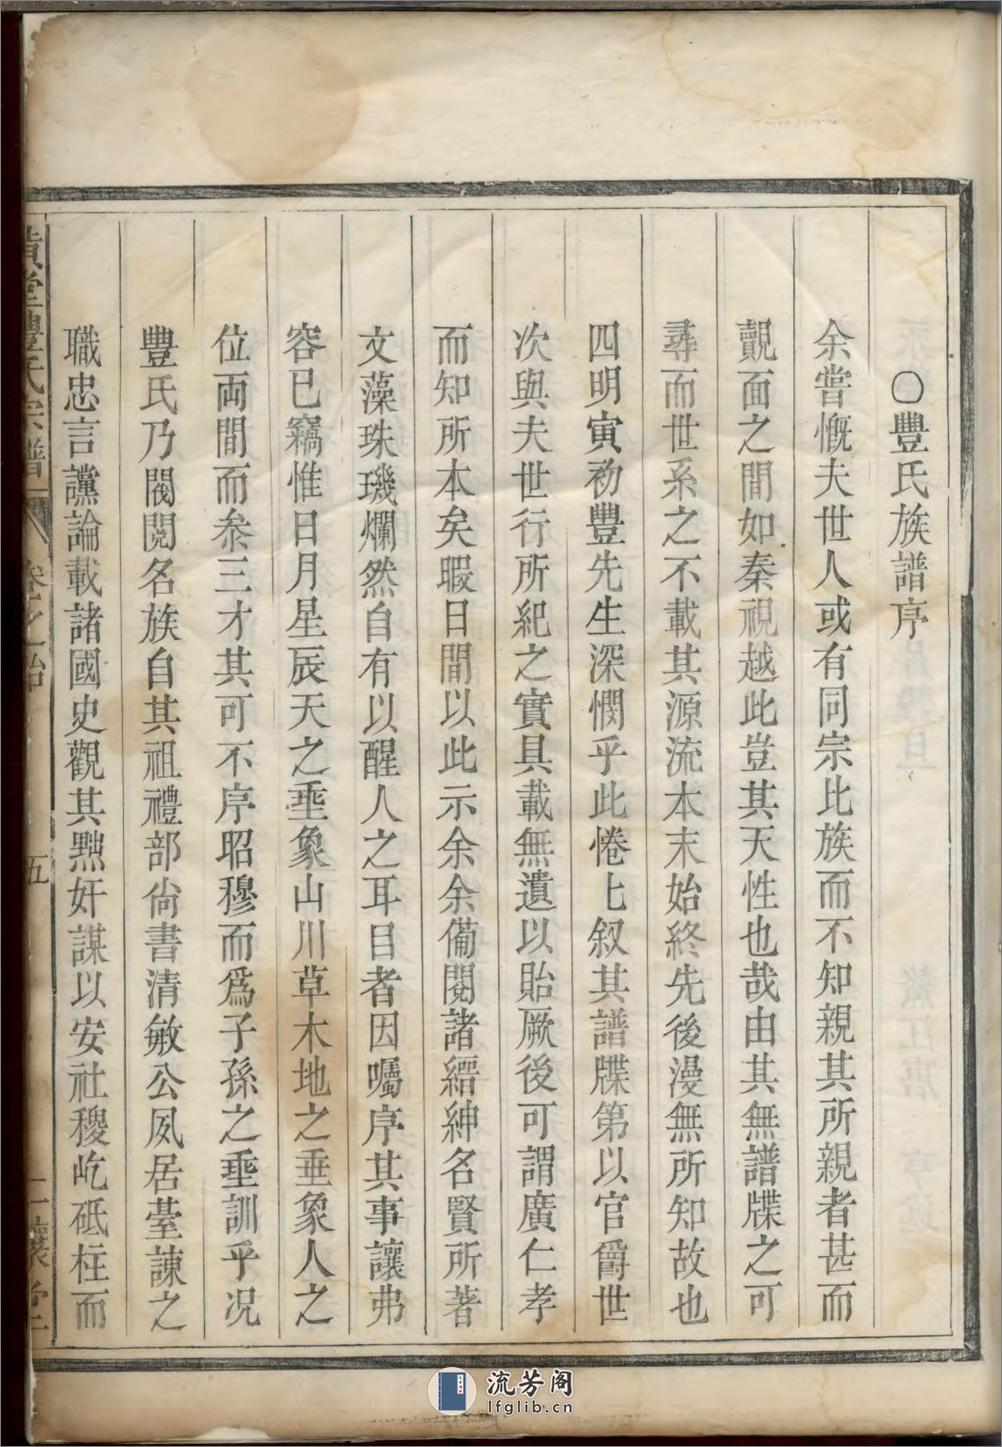 〇豐氏族譜序
余嘗慨夫世人或有同宗比族而不知親其所親者甚而
覿面之間如秦視越此豈其天性也哉由其無譜牒之可
尋而世系之不載其源流本末始終先後漫無所知故也
四明寅初豐先生深憫乎此惓匕叙其譜牒第以官爵世
次與夫世行所紀之實具載無遺以貽厥後可謂廣仁孝
而知所本矣暇日間以此示余余備閱諸縉紳名賢所著
文藻珠璣爛然自有以醒人之耳目者因囑序其事讓弗
容已竊惟日月星辰天之垂象山川草木地之垂象人之
位両間而叅三才其可不序昭穆而爲子孫之垂訓乎况
豐氏乃閥閱名族自其祖禮部尙書清敏公夙居臺諫之
職忠言讜論載諸國史觀其㸃奸謀以安社稷屹砥柱而
堂豐氏宗譜 卷之 五
流芳阁
lfglib.cn